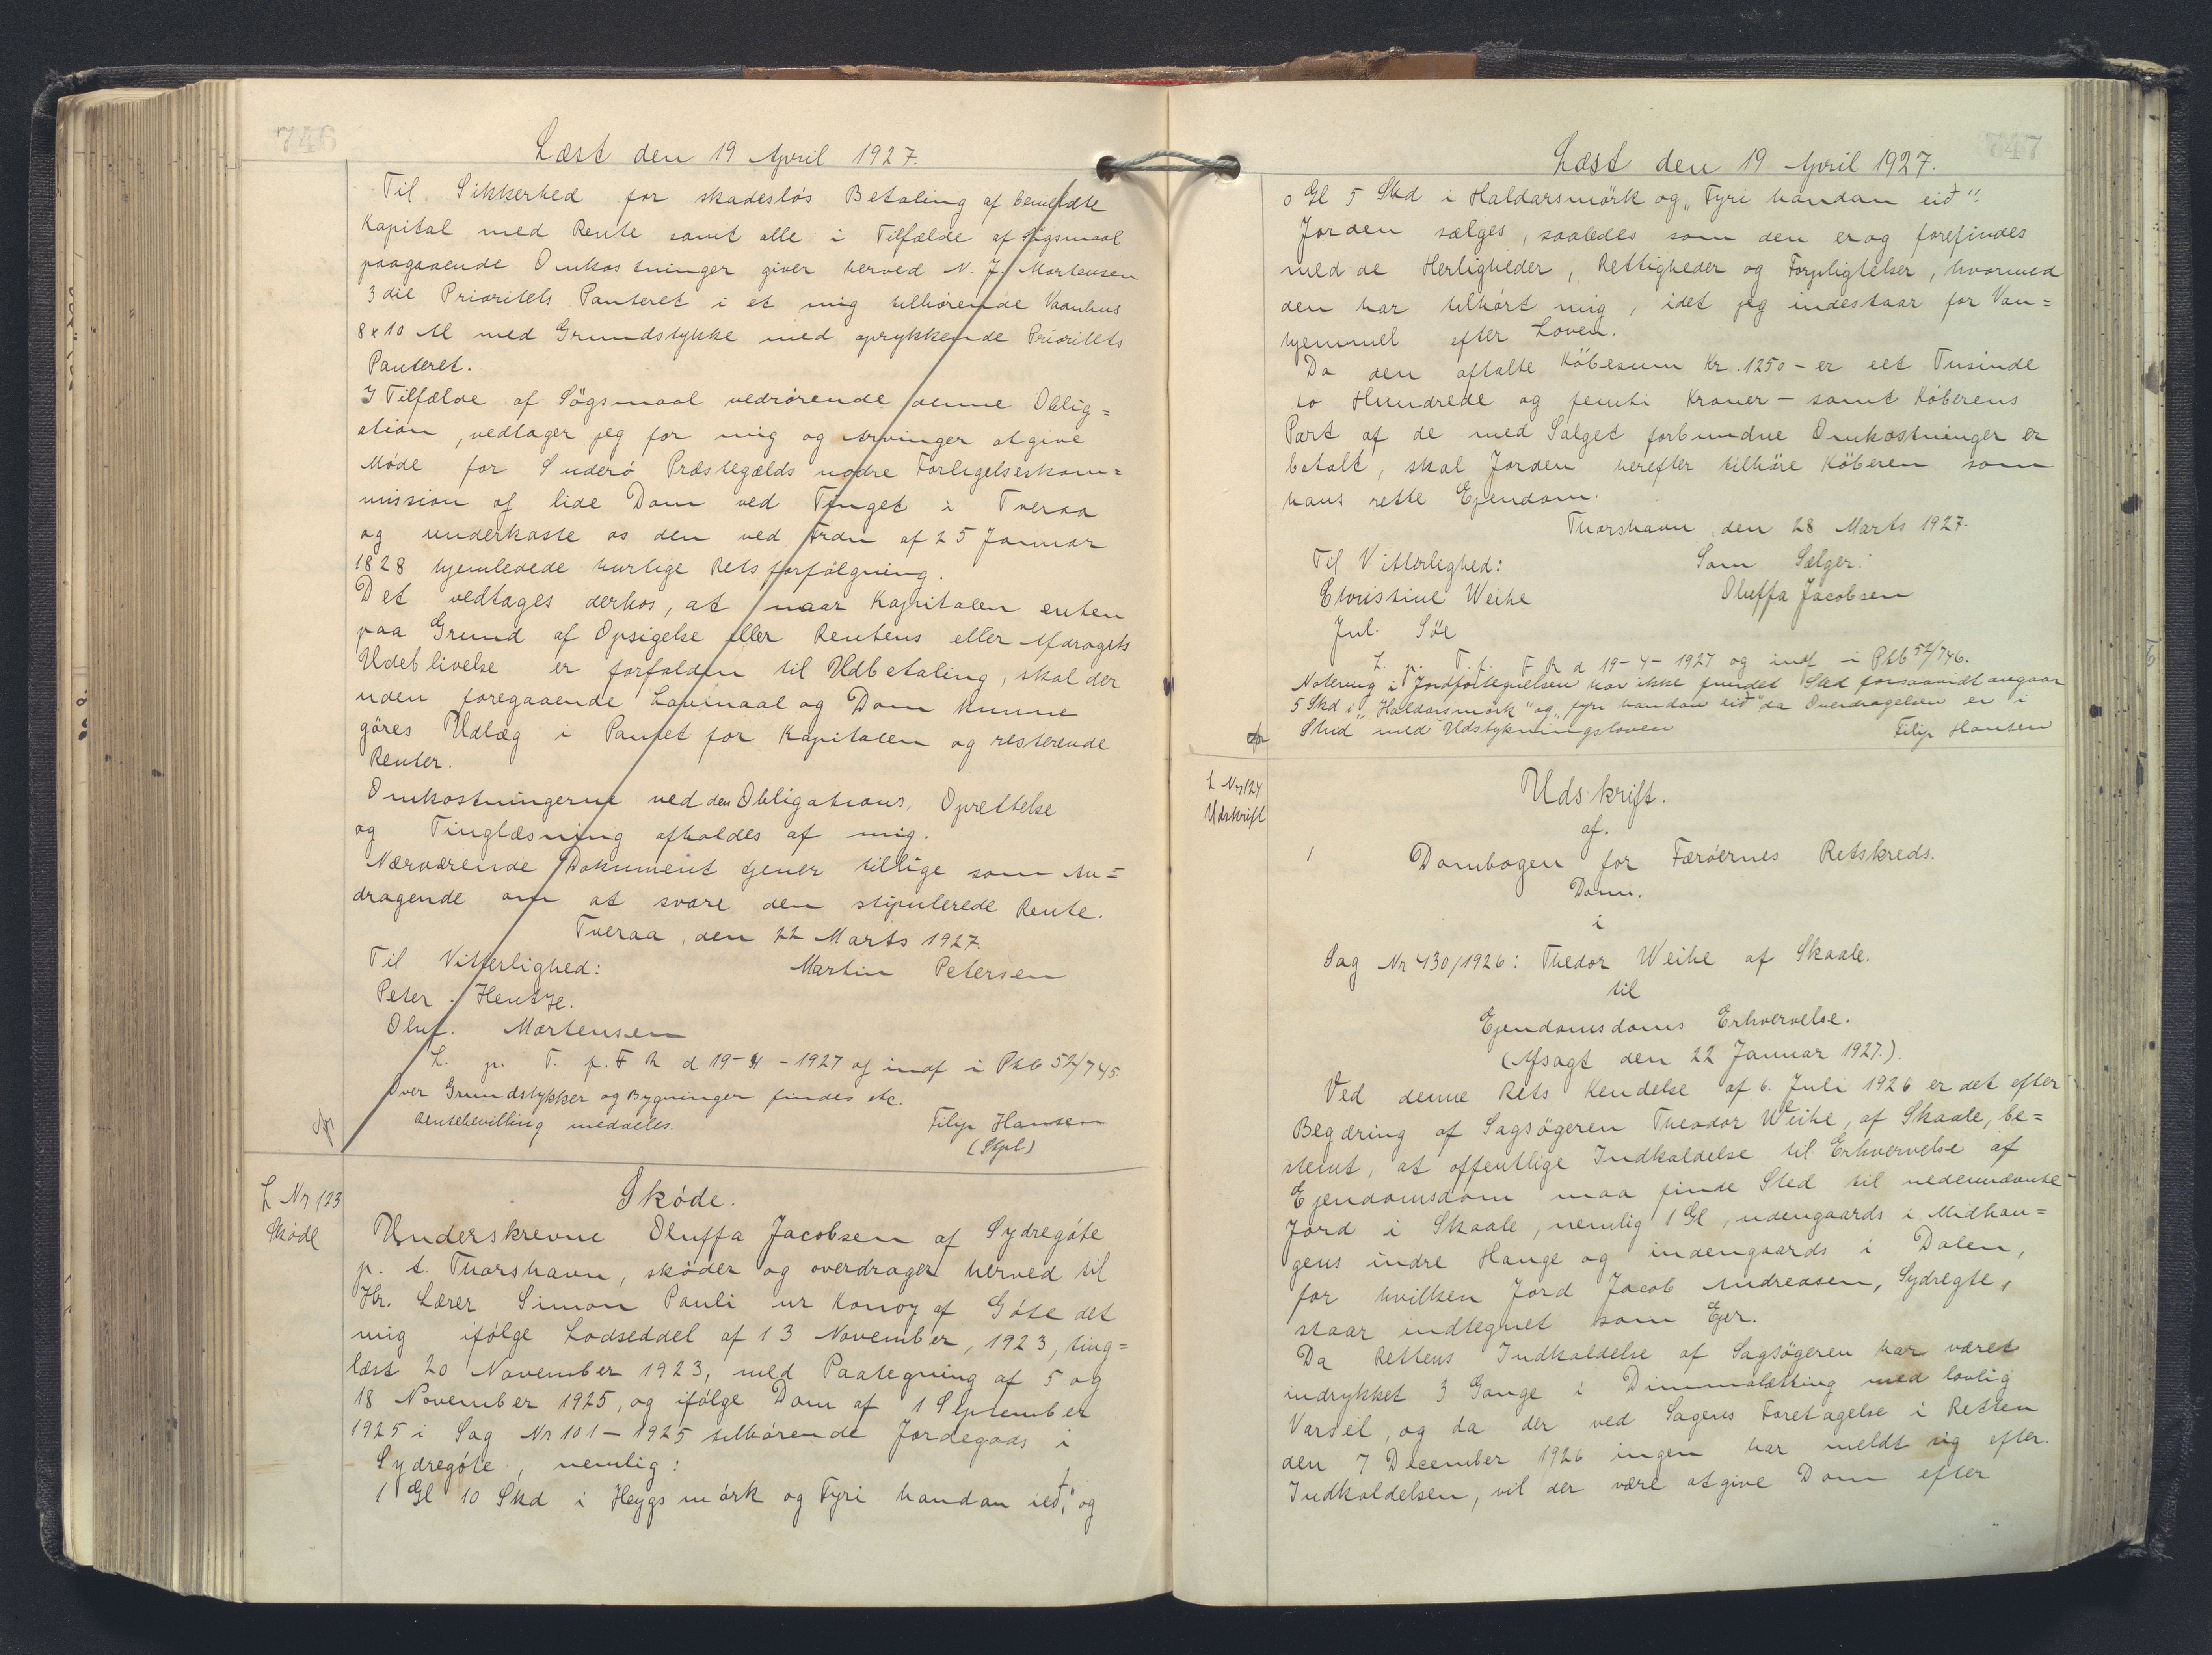 746
Læst den 19 April 1927.
Til Sikkerhed for skadesløs Betaling af bemeldte
Kapital med Rente samt alle i Tilfælde af Søgsmaal
paagaaende Omkostninger giver herved N. J. Mortensen
3 die Prioritets Panteret i et mig tilhørende Vaanhus
8 x 10 Al med Grundstykke med oprykkende Prioritets
Panteret.
I Tilfælde af Søgsmaal vedrørende denne Oblig=
ation, vedtager jeg for mig og Arvinger at give
Møde for Suderø Præstegælds nodre Forligelseskom=
mission og lide Dom ved Tinget i Tveraa
og underkaste os den ved Frdn af 25 Januar
1828 hjemlede hurtige Rets forfølgning.
Det vedtages derhos, at naar Kapitalen enten
paa Grund af Opsigelse eller Rentens eller Afdragets
Udeblivelse er forfalden til Udbetaling, skal der
uden foregaaende Lovmaal og Dom kunne
göres Udlæg i Pantet for Kapitalen og resterende
Renter.
Omkostningerne ved den Obligations, Oprettelse
og Tinglæsning afholdes af mig.
Nærværende Dokument tjener tillige som An=
dragende om at svare den stipulerede Rente.
Tveraa, den 22 Marts 1927.
Til Vitterlighed: Martin Petersen
Peter Hentze.
Oluf. Mortensen
L. p. T. f. F R d 19-4-1927 og indf i Pkb 52/745.
Over Grundstykker og Bygninger findes etc.
Rentebevilling meddeles. Filip Hansen
(Stpl)
L Nr 123
Sköde
Sköde.
Underskrevne Oluffa Jacobsen af Sydregöte
p. t. Thorshavn, sköder og overdrager herved til
Hr. Lærer Simon Pauli ur Konoy af Göte det
mig ifölge Lodseddel af 13 November, 1923, ting=
læst 20 November 1923, med Paategning af 5 og
18 November 1925, og ifølge Dom af 1 September
1925 i Sag Nr 101-1925 tilhørende Jordegods i
Sydregöte, nemlig:
1 Gl 10 Skd i Heygsmörk og Fyri handan ieð," og
747
Læst den 19 April 1927.
0 Gl 5 Skd i Haldarsmörk og „Fyri handan eið".
Jorden sælges, saaledes som den er og forefindes
med de Herligheder, Rettigheder og Forpligtelser, hvormed
den har tilhørt mig, idet jeg indestaar for Van=
hjemmel efter Loven.
Da den aftalte Köbesum Kr. 1250 - er eet Tusinde
to Hundrede og femti Kroner - samt Köberens
Part af de med Salget forbundne Omkostninger er
betalt, skal Jorden herefter tilhøre Köberen som
hans rette Ejendom.
Thorshavn, den 28 Marts 1927.
Til Vitterlighed: Som Sælger:
Christine Weihe Oluffa Jacobsen
Jul. Söe
L. p. T. f. F R d 19-4-1927 og indf i Pkb 52/746.
Notering i Jordfortegnelsen har ikke fundet Sted forsaavidt angaar
5 Skd i „Haldarsmörk" og „fyri handan eið" da Overdragelsen er i
Strid med Udstykningsloven Filip Hansen
L Nr 124
Udskrift
Udskrift.
af.
1 Dombogen for Færøernes Retskreds.
Dom.
i
Sag Nr 430/1926: Thedor Weihe af Skaale.
til
Ejendomsdoms Erhvervelse.
(Afsagt den 22 Januar 1927.)
Ved denne Rets Kendelse af 6. Juli 1926 er det efter
Begæring af Sagsøgeren Theodor Weihe, af Skaale, be=
stemt, at offentlige Indkaldelse til Erhvervelse af
Ejendomsdom maa finde Sted til nedennævnte
Jord i Skaale, nemlig 1 Gl, udengaards i Midhau=
gens indre Hauge og indengaards i Dalen,
for hvilken Jord Jacob Andreasen, Sydregte,
staar indtegnet som Ejer.
Da Rettens Indkaldelse af Sagsøgeren har været
indrykket 3 Gange i Dimmalætting med lovlig
Varsel, og da der ved Sagens Foretagelse i Retten
den 7 December 1926 ingen har meldt sig efter
Indkaldelsen, vil der være at give Dom efter